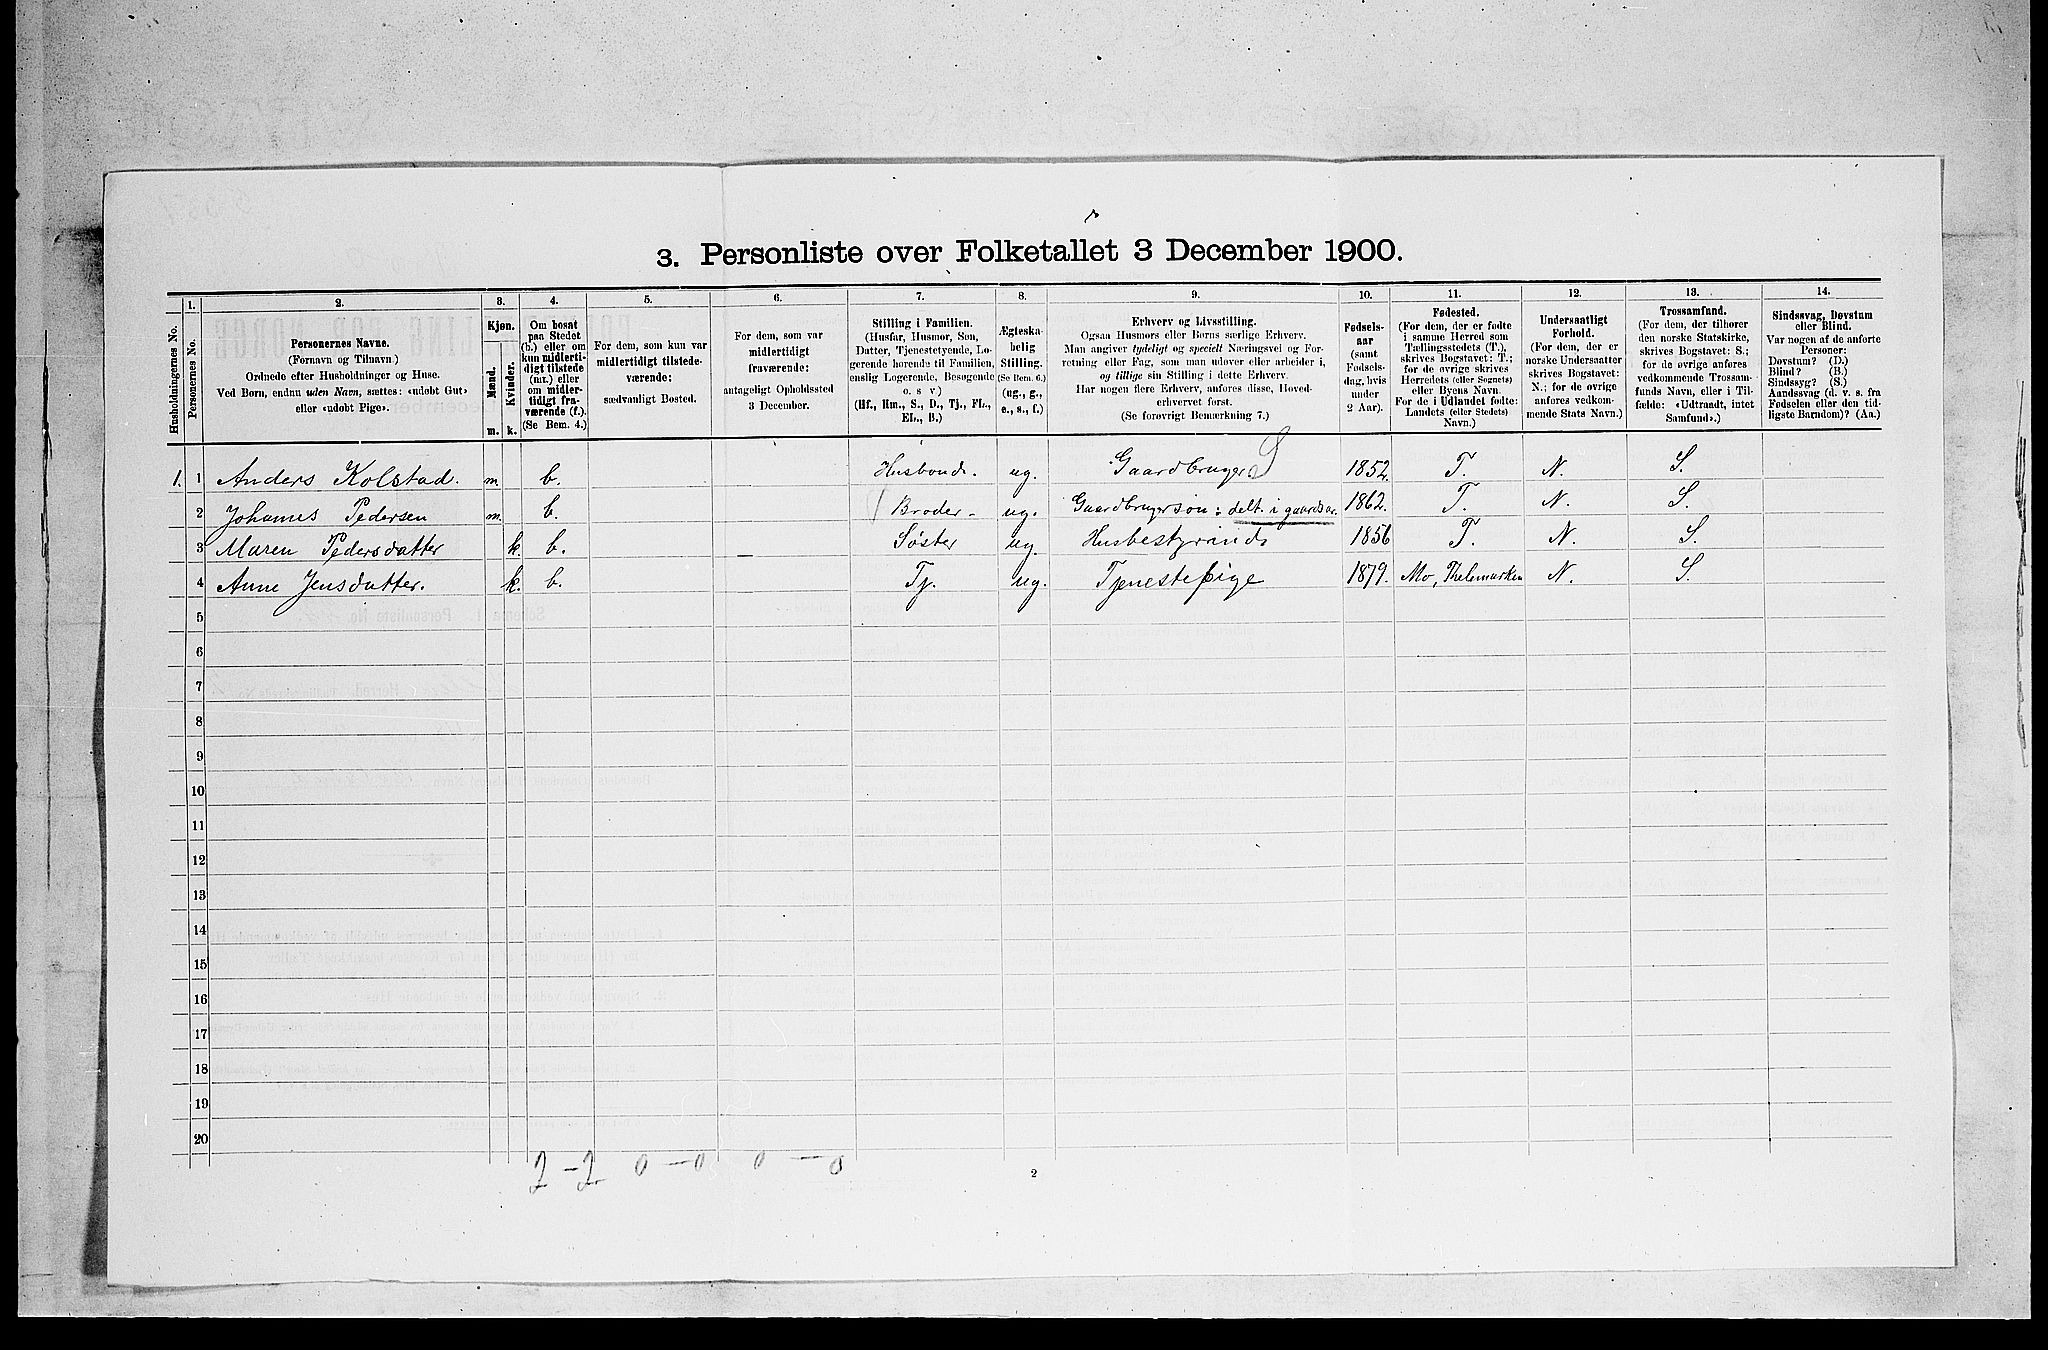 3. Personliste over Folketallet 3 December 1900.
Husholdningernes No.
1.
Personernes No.
2.
Personernes Navne.
(Fornavn og Tilnavn.)
Ordnede efter Husholdninger og Huse.
Ved Børn, endnu uden Navn, sættes: «udøbt Gut»
eller «udøbt Pige».
3.
Kjøn.
Mænd.
Kvinder.
m. k.
4.
Om bosat
paa Stedet
(b.) eller om
kun midlerti-
digt tilstede
(mt.) eller
om midler-
tidigt fra-
værende (f.).
(Se Bem. 4.)
5.
For dem, som kun var
midlertidigt tilstede-
værende:
sædvanligt Bosted.
6.
For dem, som var
midlertidigt
fraværende:
antageligt Opholdssted
3 December.
7.
Stilling i Familien.
(Husfar, Husmor, Søn,
Datter, Tjenestetyende, Lo-
gerende hørende til Familien,
enslig Logerende, Besøgende
o. s. v.)
(Hf., Hm., S., D., Tj., FL.,
EL., B.)
8.
Ægteska-
belig
Stilling.
(Se Bem. 6.)
(ug., g.,
e., s., f.)
9.
Erhverv og Livsstilling.
Ogsaa Husmors eller Børns særlige Erhverv.
Man angiver tydeligt og specielt Næringsvei og For-
retning eller Fag, som man udøver eller arbeider i,
og tillige sin Stilling i dette Erhverv.
Har nogen flere Erhverv, anføres disse, Hoved-
erhvervet først.
(Se forøvrigt Bemærkning 7.)
10.
Fødsels-
aar
(samt
Fødsels-
dag, hvis
under
2 Aar).
11.
Fødested.
(For dem, der er fødte
i samme Herred som
Tællingsstedets (T.),
skrives Bogstavet: T.;
for de øvrige skrives
Herredets (eller Sognets)
eller Byens Navn.
For de i Udlandet fødte:
Landets (eller Stedets)
Navn.)
12.
Undersaatligt
Forhold.
(For dem, der er
norske Undersaatter
skrives Bogstavet:
N.; for de øvrige
anføres vedkom-
mende Stats Navn.)
13.
Trossamfund.
(For dem, der tilhører
den norske Statskirke,
skrives Bogstavet: S.;
for de øvrige anføres
vedkommende Trossam-
funds Navn, eller i Til-
fælde: «Udtraadt, intet
Samfund».)
14.
Sindssvag, Døvstum
eller Blind.
Var nogen af de anførte
Personer:
Døvstum? (D.)
Blind? (B.)
Sindssyg? (S.)
Aandssvag (d. v. s. fra
Fødselen eller den tid-
ligste Barndom)? (Aa.)
1. 1 Anders Kolstad. m. b. Husbond. ug. Gaardbruger S 1852. T. N. S.
2 Johannes Pedersen m. b. Broder. ug. Gaardbrugersøn: delt. i gaardsar. 1862. T. N. S.
3 Maren Pedersdatter k. b. Søster ug. Husbestyrinde 1856 T. N. S.
4 Anne Jensdatter. k. b. Tj. ug. Tjenestepige 1879. Mo, Thelemarken N. S.
5
6
7
8
9
10
11
12
13
14
15
16
17
18
19
20
2 - 2 0 - 0 0 - 0
2